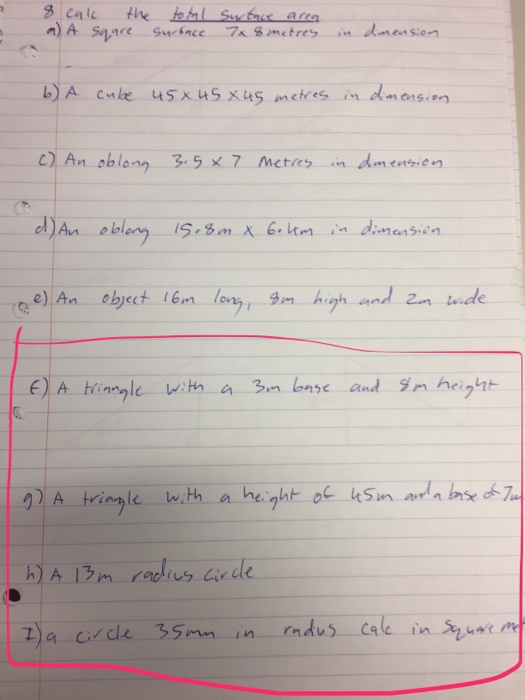 8 calc the total surface area
a) A sqare surface 7x8 metres in dimension
b) A cube 45 x 45 x 45 metres in dimension
c) An oblong 3.5 x 7 Metres in dmension
d) An oblong 15.8m x 6.4m in dimension
e) An object 16m long, 8m high and 2m wide
f) A triangle with a 3m base and 8m height
g) A triangle with a height of 45m and a base of 7m
h) A 13m radius circle
I) a circle 35mm in radus calc in square met